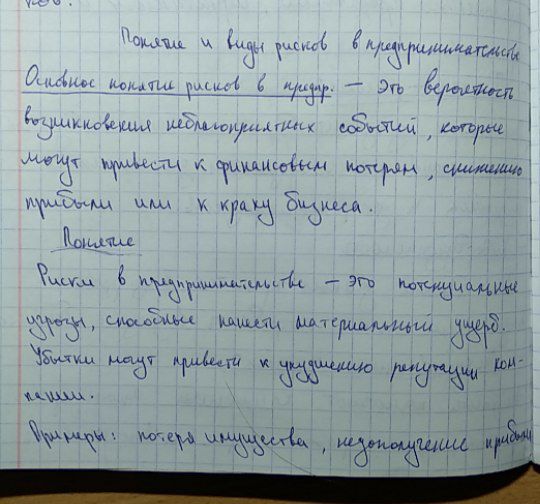 Понятие и виды рисков в предпринимательстве
Основное понятие рисков в предпр. — это вероятность
возникновения неблагоприятных событий, которые
могут привести к финансовым потерям, снижению
прибыли или к краху бизнеса.
Понятие
Риски в предпринимательстве — это потенциальные
угрозы, способные нанести материальный ущерб.
Убытки могут привести к ухудшению репутации ком-
пании.
Примеры: потеря имущества, недополучение прибыли